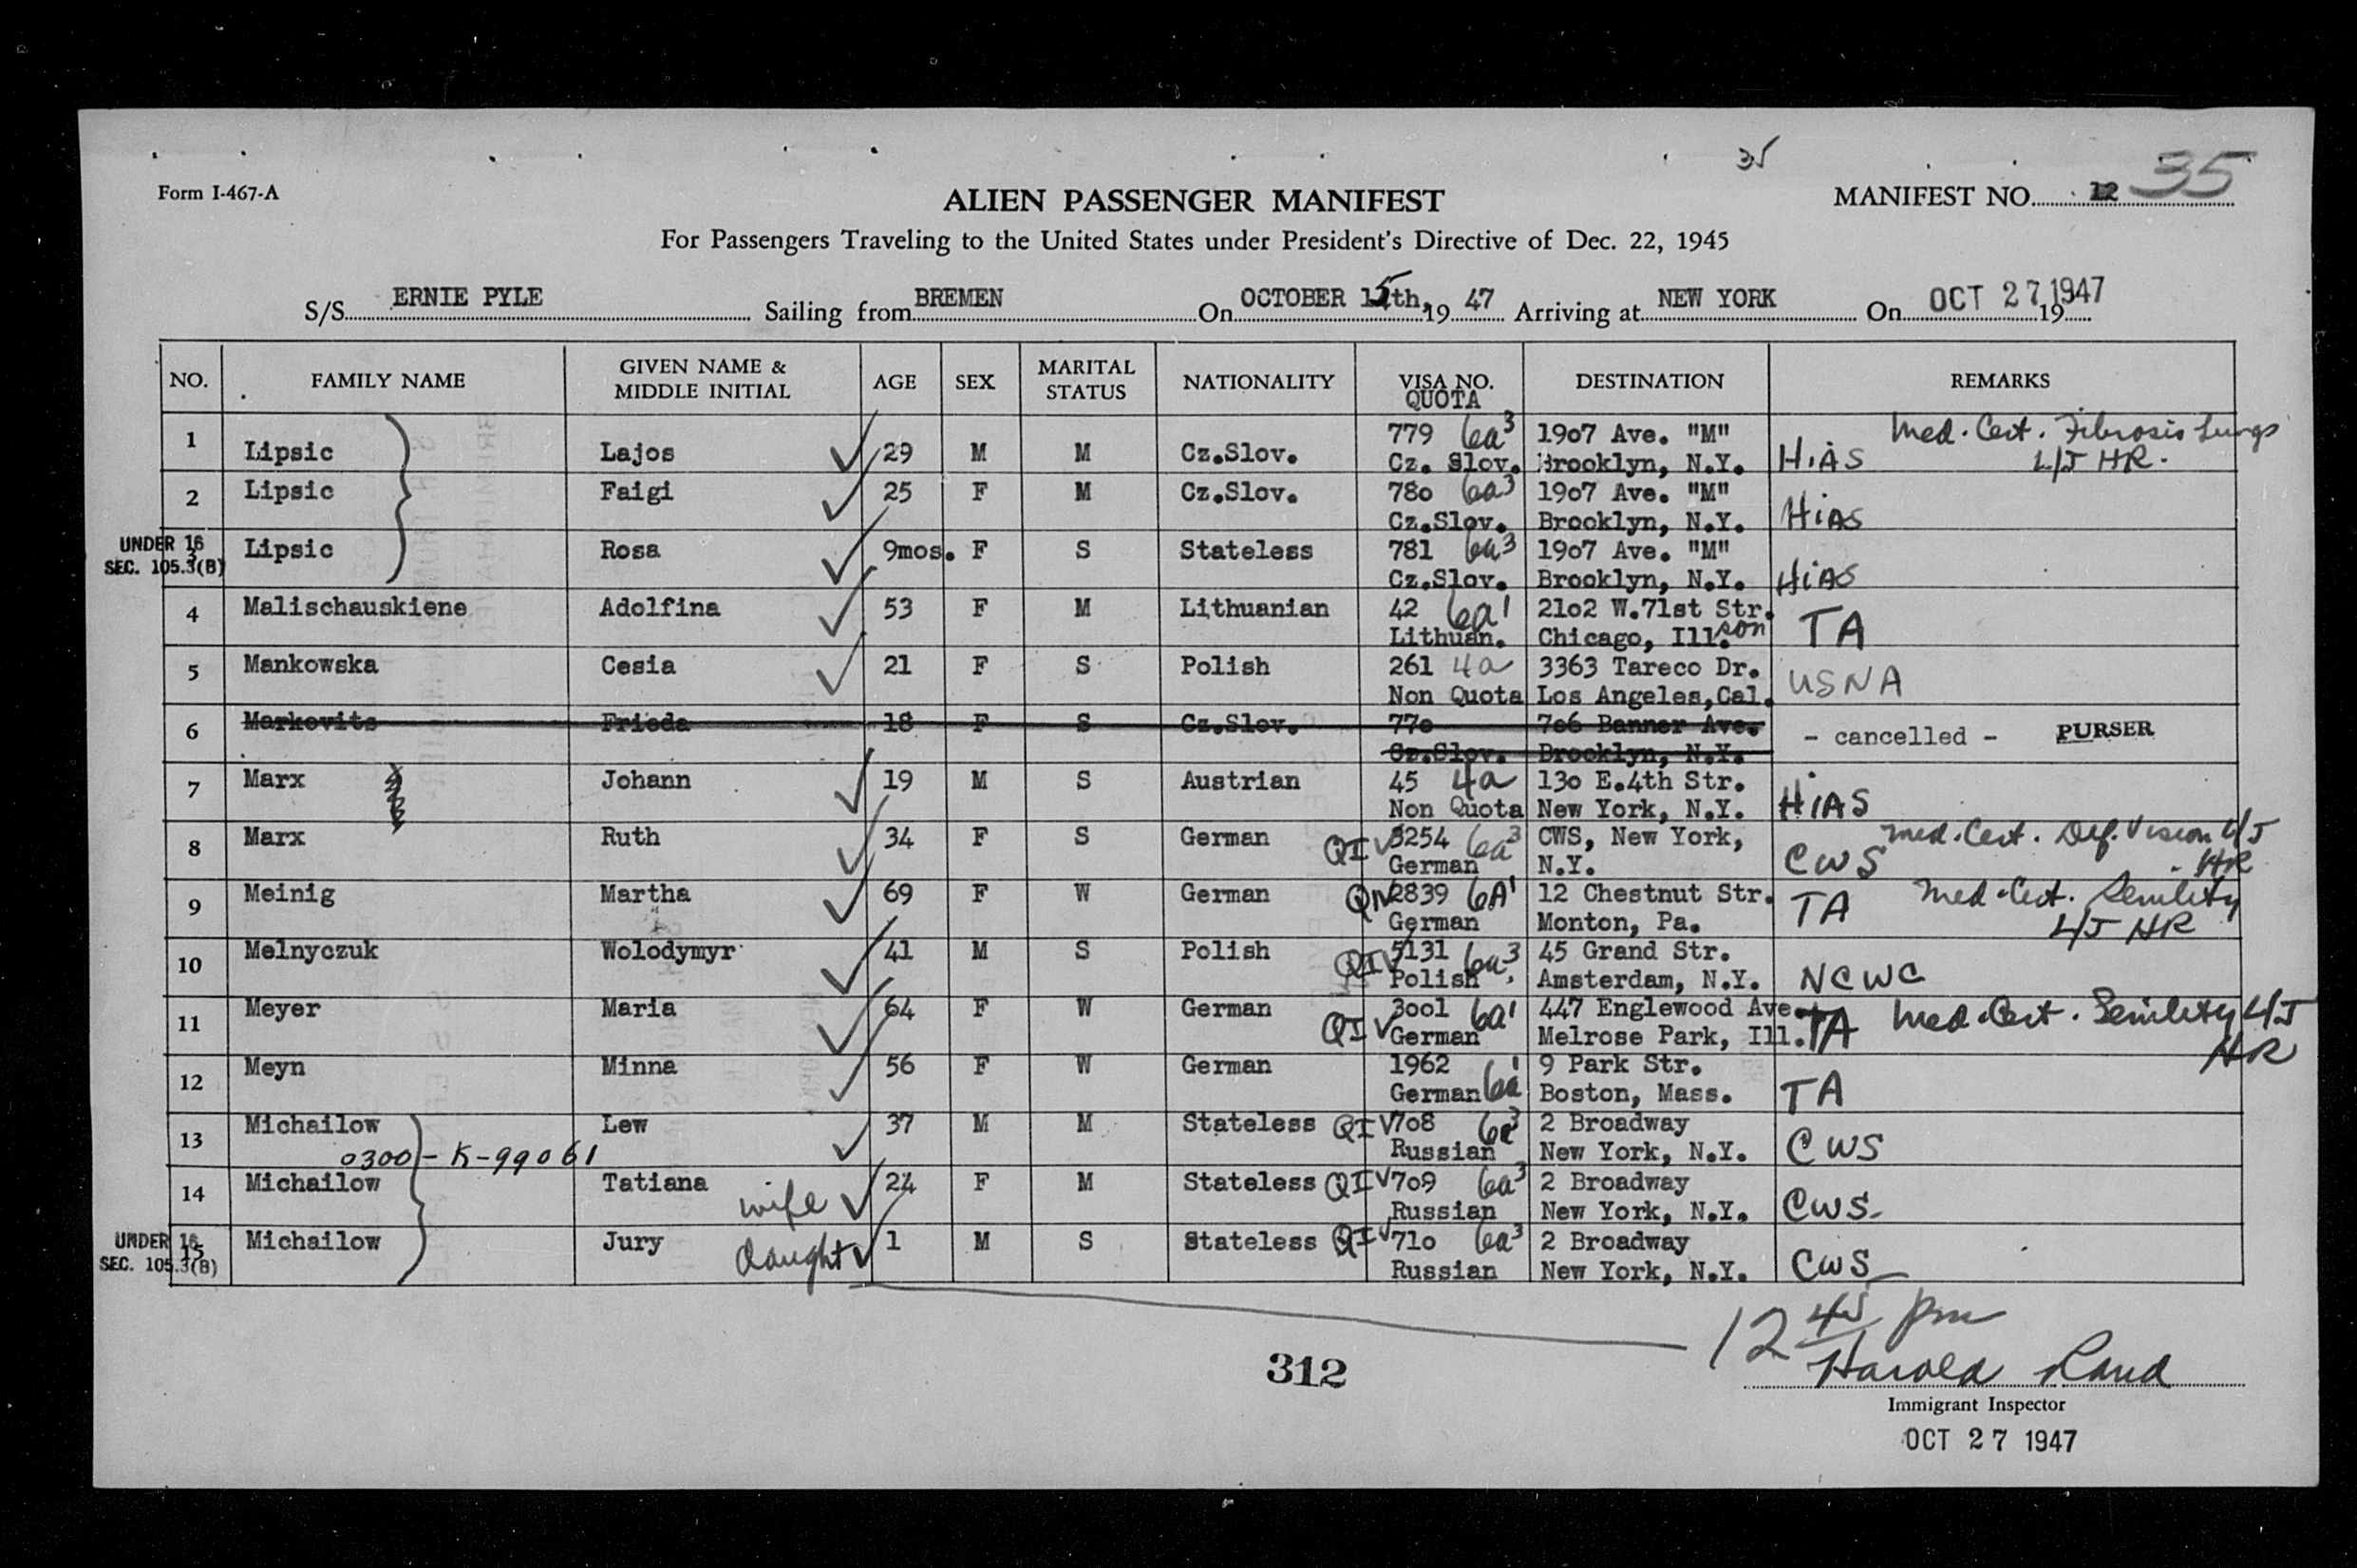 35
Form I-467-A
ALIEN PASSENGER MANIFEST
MANIFEST NO. 12 35
For Passengers Traveling to the United States under President's Directive of Dec. 22, 1945
S/S ERNIE PYLE Sailing from BREMEN On OCTOBER 15th, 19 47 Arriving at NEW YORK On OCT 27 1947 19
NO. FAMILY NAME GIVEN NAME & MIDDLE INITIAL AGE SEX MARITAL STATUS NATIONALITY VISA NO. QUOTA DESTINATION REMARKS
1 Lipsic Lajos 29 M M Cz.Slov. 779 6a3 1907 Ave. "M" Med. Cert. Fibrosis Lungs
Cz. Slov. Brooklyn, N.Y. HIAS L/J HR.
2 Lipsic Faigi 25 F M Cz.Slov. 780 6a3 1907 Ave. "M"
Cz.Slov. Brooklyn, N.Y. HIAS
UNDER 16 SEC. 105.3(B) 3 Lipsic Rosa 9mos. F S Stateless 781 6a3 1907 Ave. "M"
Cz.Slov. Brooklyn, N.Y. HIAS
4 Malischauskiene Adolfina 53 F M Lithuanian 42 6a1 2102 W.71st Str.
Lithuan. Chicago, Ill. son TA
5 Mankowska Cesia 21 F S Polish 261 4a 3363 Tareco Dr.
Non Quota Los Angeles,Cal. USNA
6 Markovits Frieda 18 F S Cz.Slov. 770 706 Banner Ave.
Cz.Slov. Brooklyn, N.Y. - cancelled - PURSER
7 Marx Johann 19 M S Austrian 45 4a 130 E.4th Str.
Non Quota New York, N.Y. HIAS
8 Marx Ruth 34 F S German QIV 3254 6a3 CWS, New York, Med. Cert. Def. Vision L/J
German N.Y. CWS - HR
9 Meinig Martha 69 F W German QIV 2839 6A1 12 Chestnut Str. Med. Cert. Senility
German Monton, Pa. TA L/J HR
10 Melnyczuk Wolodymyr 41 M S Polish QIV 5131 6a3 45 Grand Str.
Polish Amsterdam, N.Y. NCWC
11 Meyer Maria 64 F W German QIV 3001 6a1 447 Englewood Ave. Med. Cert. Senility L/J
German Melrose Park, Ill. TA HR
12 Meyn Minna 56 F W German 1962 6a1 9 Park Str.
German Boston, Mass. TA
13 Michailow Lew 37 M M Stateless QIV 708 6a3 2 Broadway
0300 - K-99061 Russian New York, N.Y. CWS
14 Michailow Tatiana wife 24 F M Stateless QIV 709 6a3 2 Broadway
Russian New York, N.Y. CWS-
UNDER 16 SEC. 105.3(B) 15 Michailow Jury daught 1 M S Stateless QIV 710 6a3 2 Broadway
Russian New York, N.Y. CWS
12 45 pm
312
Harold Rand
Immigrant Inspector
OCT 27 1947